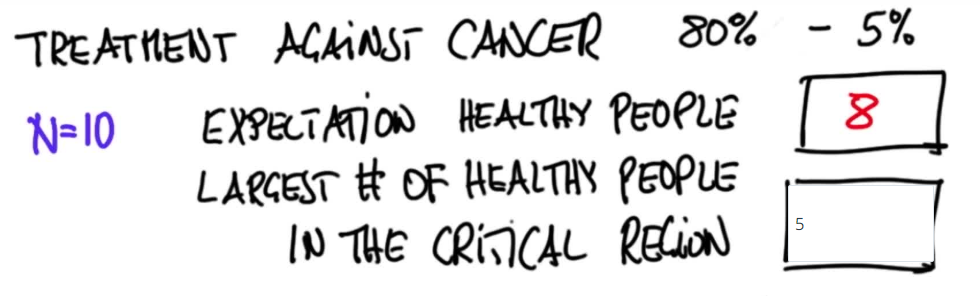 TREATMENT AGAINST CANCER 80% - 5%
N=10 EXPECTATION HEALTHY PEOPLE 8
LARGEST # OF HEALTHY PEOPLE
IN THE CRITICAL REGION 5